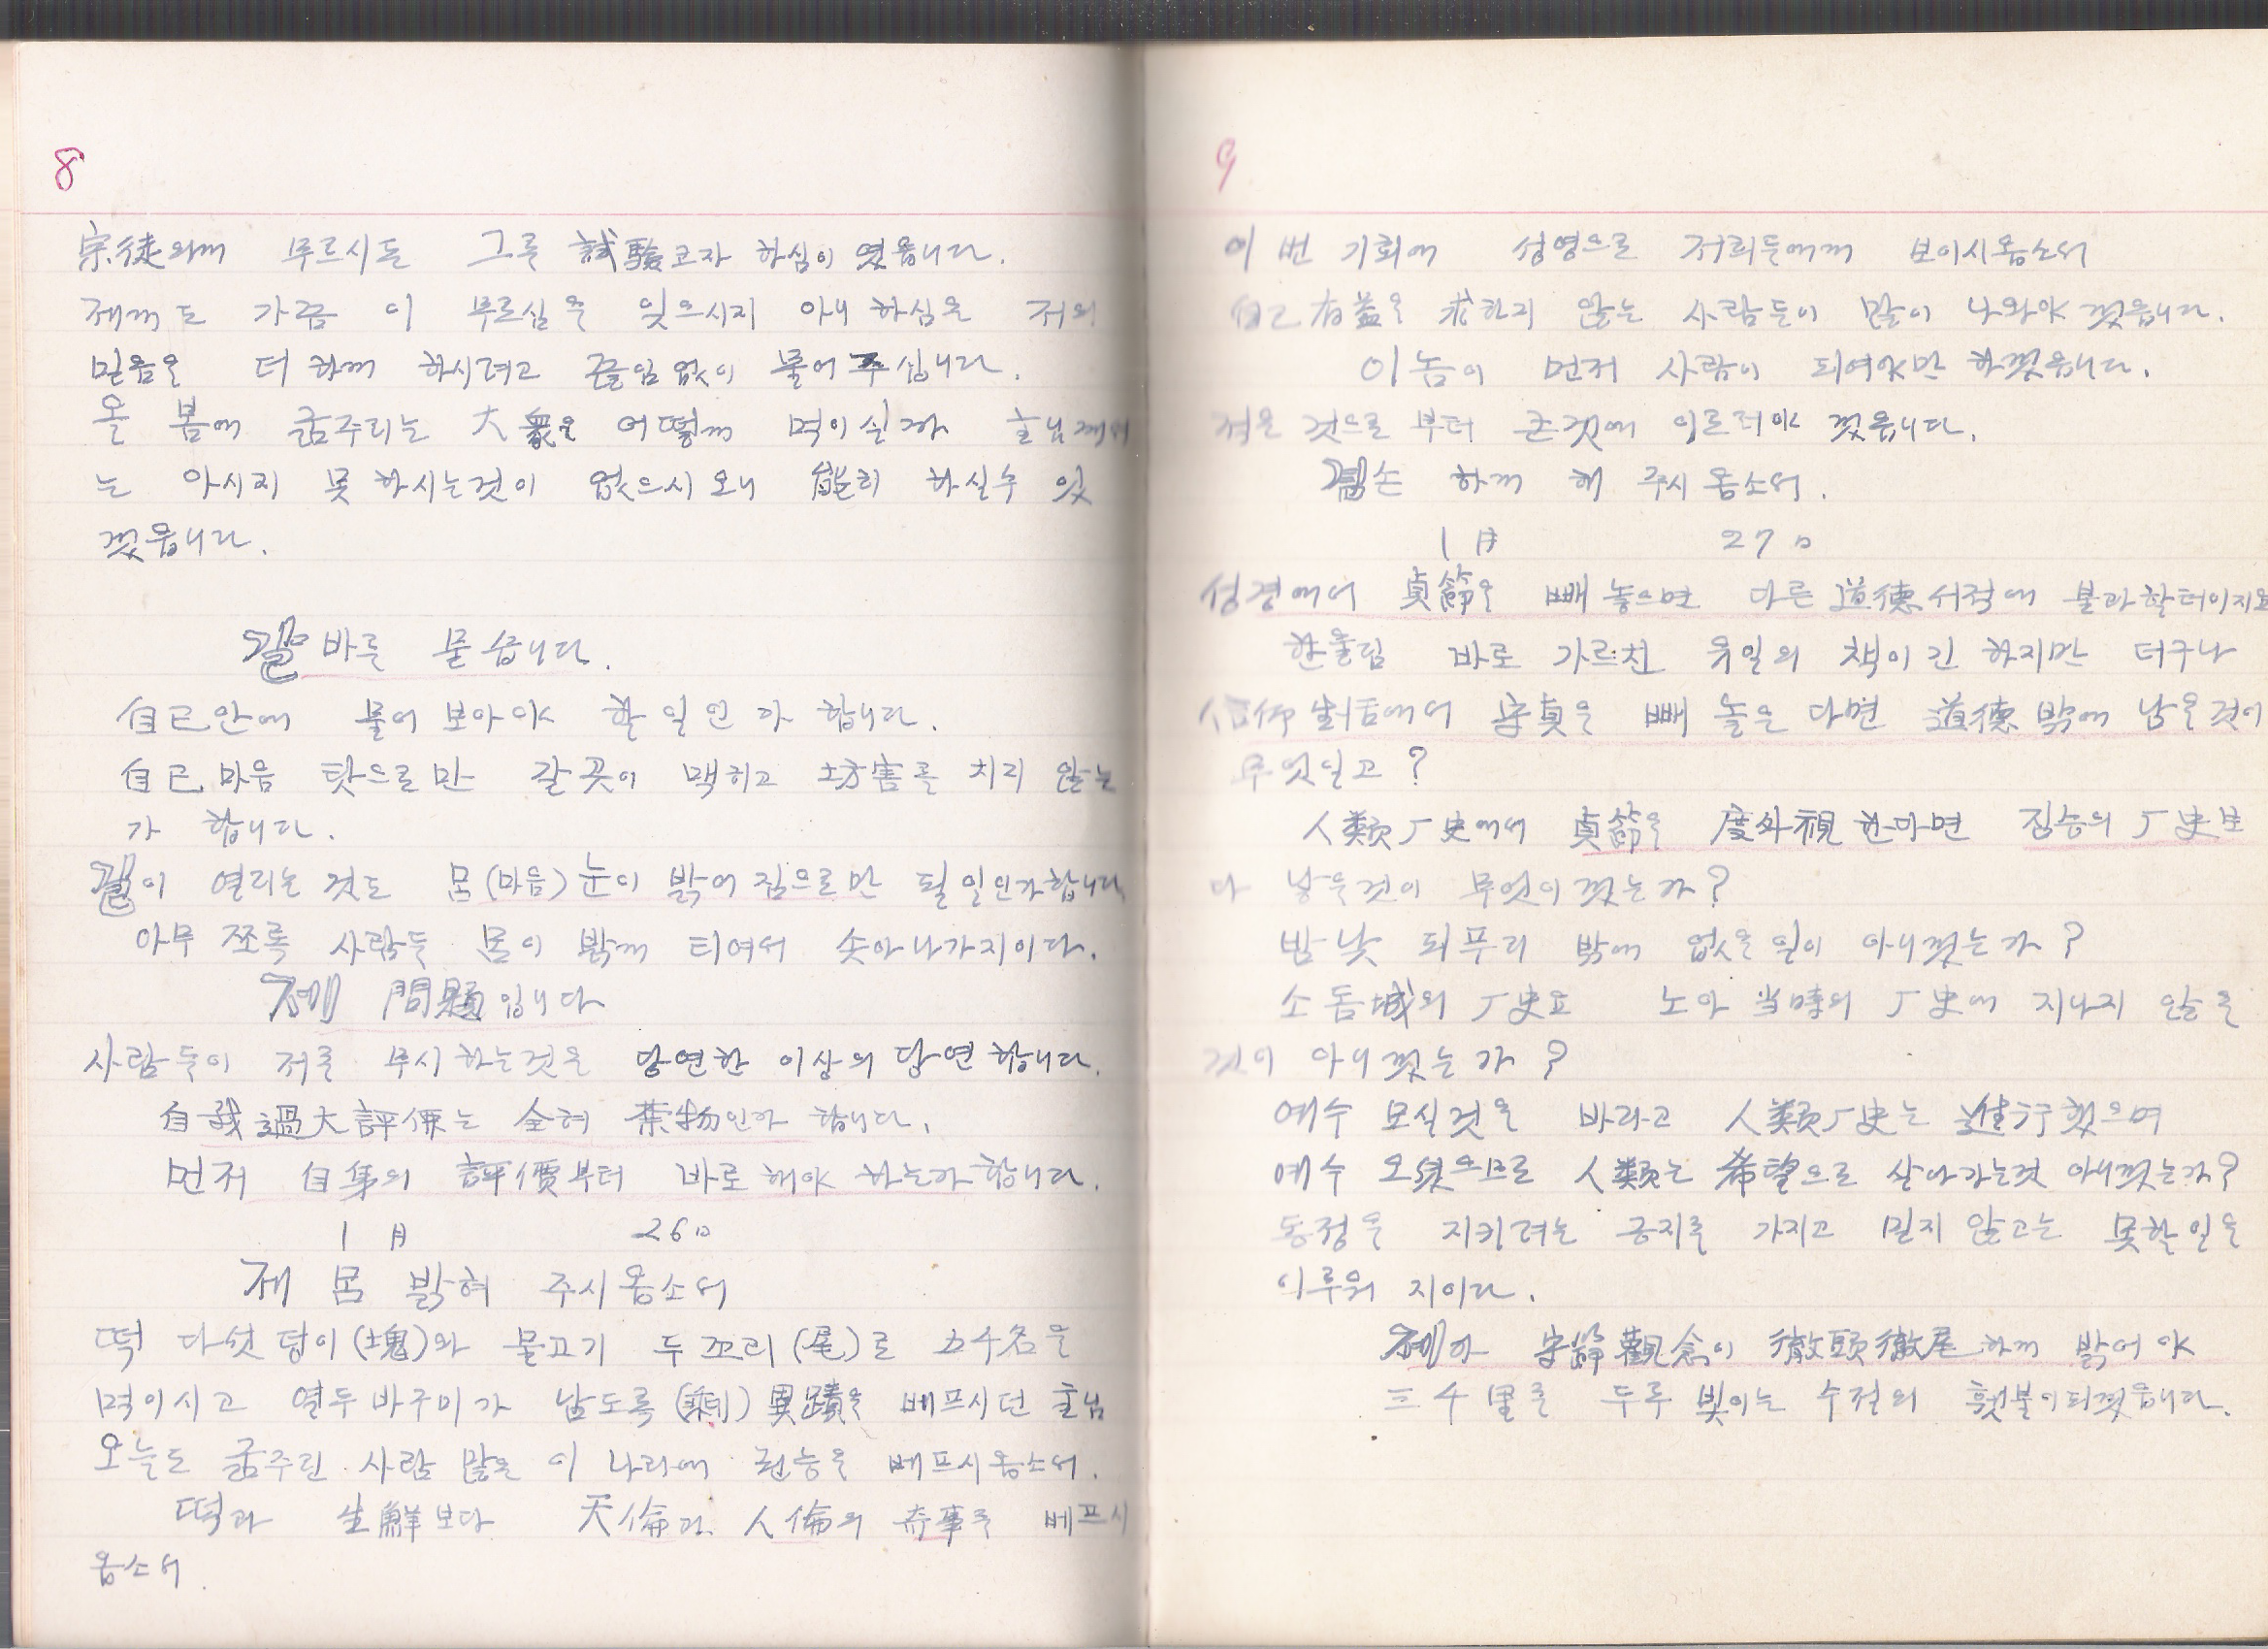 8
宗徒의께 무르시든 그를 試驗코자 하심이 였읍니다.
제께도 가끔 이 무르심을 잊으시지 아니 하심은 저의
믿음을 더 하께 하시려고 끊임없이 물어 주십니다.
올 봄에 굶주리는 大衆을 어떻께 먹이실까 主님께서
는 아시지 못 하시는것이 없으시오니 能히 하실수 있
겠읍니다.
길 바를 묻습니다.
自己안에 물어 보아야 할 일인가 합니다.
自己마음 탓으로만 갈 곳이 맥히고 妨害를 치지 않는
가 합니다.
길이 열리는 것도 몸(마음)눈이 밝어 짐으로만 될 일인가합니다
아무 쪼록 사람들 몸이 밝께 되여서 솟아나가지이다.
제 問題입니다
사람들이 저를 무시하는것은 당연한 이상의 당연합니다.
自我過大評価는 全혀 禁物인가 합니다.
먼저 自身의 評價부터 바로해야 하는가합니다.
1月 26日
제 몸 밝혀 주시옵소서
떡 다섯 덩이(塊)와 물고기 두 꼬리(尾)로 五千名을
먹이시고 열두 바구미가 남도록(剩) 異蹟을 베프시던 主님
오늘도 굶주린 사람 많은 이 나라에 권능을 베프시옵소서.
떡과 生鮮보다 天倫과 人倫의 奇事를 베프시
옵소서.
9
이 번 기회에 성영으로 저희들에께 보이시옵소서
自己有益을 求하지 않는 사람들이 많이 나와야 겠읍니다.
이놈이 먼저 사람이 되여야만 하겠읍니다.
적은 것으로 부터 큰것에 이르러야 겠읍니다.
겸손 하께 해 주시옵소서.
1月 27日
성경에서 貞節을 빼 놓으면 다른 道德서적에 불과할터이지요
한울님 바로 가르친 유일의 책이긴 하지만 더구나
信仰生活에서 守貞을 빼 놀은다면 道德밖에 남을것이
무엇일고?
人類厂史에서 貞節을 度外視한다면 짐승의 厂史보
다 낳을것이 무엇이겠는가?
밤낮 되푸리 밖에 없을일이 아니겠는가?
소돔城의 厂史요 노아 当時의 厂史에 지나지 않을
것이 아니겠는가?
예수 오실것을 바라고 人類厂史는 進行했으며
예수 오셨으므로 人類는 希望으로 살아가는것 아니겠는가?
동정을 지키려는 긍지를 가지고 믿지 않고는 못할일을
이루워 지이다.
제가 守節觀念이 徹頭徹尾하께 밝어야
三千里를 두루 빛이는 수정의 횃불이되겠읍니다.